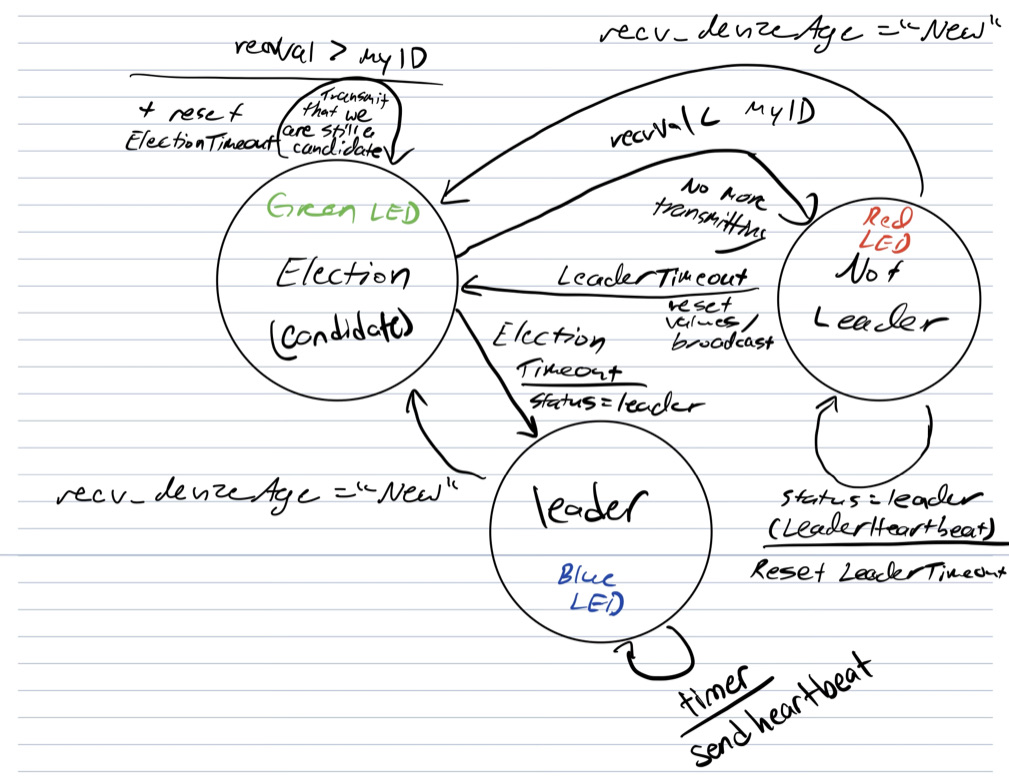 recv_deviceAge = "New"
recvVal > myID
+ reset
ElectionTimeout
Transmit
that we
are still a
candidate
recvVal < MyID
No more
transmitting
Green LED
Election
(candidate)
Red
LED
Not
Leader
LeaderTimeout
reset
values/
broadcast
Election
Timeout
status=leader
recv_deviceAge = "New"
leader
Blue
LED
status=leader
(LeaderHeartbeat)
Reset LeaderTimeout
timer
send heartbeat